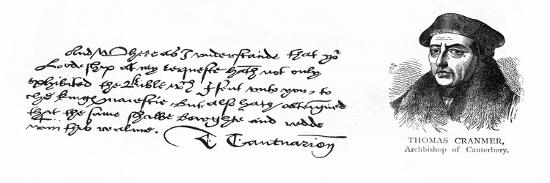 And Where as I understande that yor
Lordeship at my requeste hath not only
exhibited the Bible wch I sent unto you, to
the kings maiestie. But also hath obteigned
that the same shalbe
this realme.
T Cantuarien
THOMAS CRANMER,
Archbishop of Canterbury.